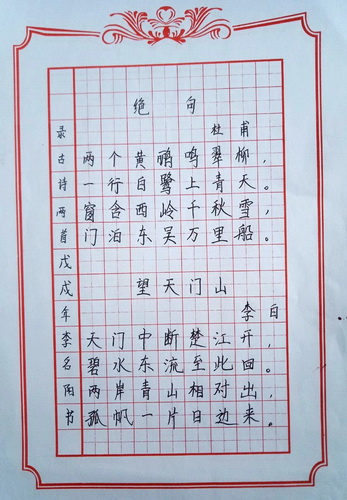 绝句
杜甫
两个黄鹂鸣翠柳，
一行白鹭上青天。
窗含西岭千秋雪，
门泊东吴万里船。
望天门山
李白
天门中断楚江开，
碧水东流至此回。
两岸青山相对出，
孤帆一片日边来。
录古诗两首戊戌年李名阳书